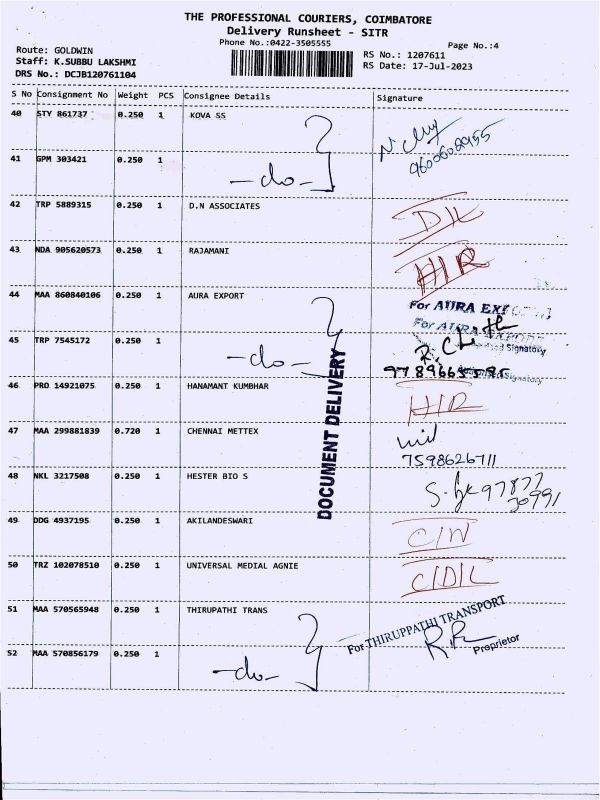 THE PROFESSIONAL COURIERS, COIMBATORE
Delivery Runsheet - SITR
Phone No.:0422-3505555
Page No.:4
Route: GOLDWIN
Staff: K.SUBBU LAKSHMI
DRS No.: DCJB120761104
RS No.: 1207611
RS Date: 17-Jul-2023
S No Consignment No Weight PCS Consignee Details Signature
40 STY 861737 0.250 1 KOVA SS
9600602955
41 GPM 303421 0.250 1
-do-
42 TRP 5889315 0.250 1 D.N ASSOCIATES D/L
43 NDA 905620573 0.250 1 RAJAMANI H/R
44 MAA 860840106 0.250 1 AURA EXPORT
For AURA EXPORT
For AURA EXPORT
45 TRP 7545172 0.250 1
-do-
Authorised Signatory
Authorised Signatory
46 PRO 14921075 0.250 1 HANAMANT KUMBHAR H/R
DOCUMENT DELIVERY
47 MAA 299881839 0.720 1 CHENNAI METTEX
7598626711
48 NKL 3217508 0.250 1 HESTER BIO S
97877
30991
49 DDG 4937195 0.250 1 AKILANDESWARI C/N
50 TRZ 102078510 0.250 1 UNIVERSAL MEDIAL AGNIE C/D/L
51 MAA 570565948 0.250 1 THIRUPATHI TRANS
For THIRUPPATHI TRANSPORT
Proprietor
52 MAA 570856179 0.250 1
-do-